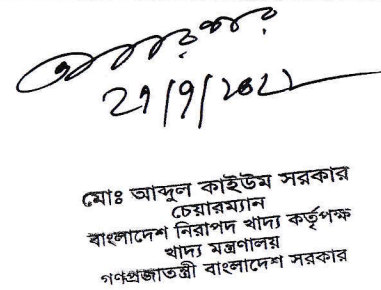 মোঃ আব্দুল কাইউম সরকার
চেয়ারম্যান
বাংলাদেশ নিরাপদ খাদ্য কর্তৃপক্ষ
খাদ্য মন্ত্রণালয়
গণপ্রজাতন্ত্রী বাংলাদেশ সরকার